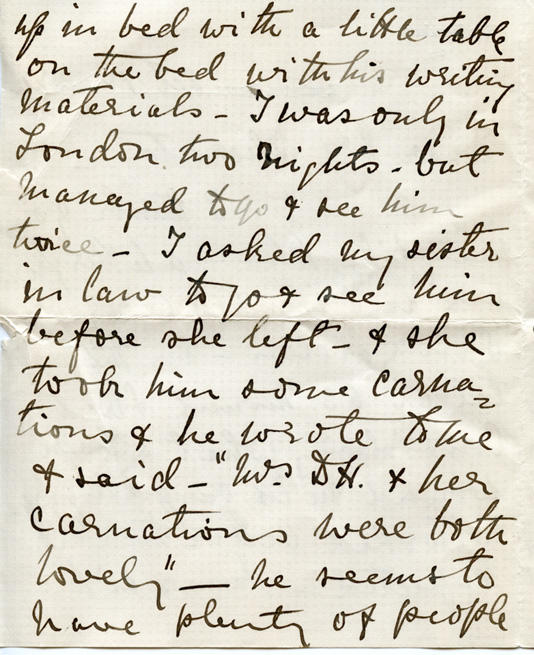 up in bed with a little table
on the bed with his writing
materials - I was only in
London two nights - but
managed to go & see him
twice - I asked my sister
in law to go & see him
before she left - & she
took him some carna=
tions & he wrote to me
& said - "Mrs D.H. & her
carnations were both
lovely" — he seems to
have plenty of people